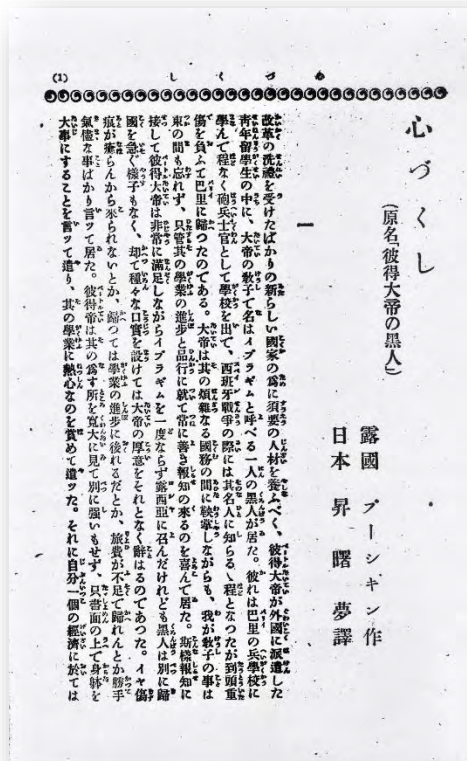 (1) しくづゝろこ
心づくし
(原名「彼得大帝の黒人」)
露國 プーシキン作
日本 昇曙夢譯
一
改革の洗禮を受けたばかりの新らしい國家の爲に須要の人材を養ふべく、彼得大帝が外國に派遣した
靑年留學生の中に、大帝の敎子で名はイブラギムと呼べる一人の黑人が居た。彼れは巴里の兵學校に
學んで程なく砲兵士官として學校を出で、西班牙戰爭の際には其名人に知らるゝ程となつたが到頭重
傷を負ふて巴里に歸つたのである。大帝は其の煩雜なる國務の間に鞅掌しながらも、我が敎子の事は
束の間も忘れず、只管其の學業の進步と品行に就て常に善き報知の來るのを喜んで居た。斯樣報知に
接して彼得大帝は非常に滿足しながらイブラギムを一度ならず露西亞に召んだけれども黑人は別に歸
國を急ぐ樣子もなく、却て種々な口實を設けては大帝の厚意をそれとなく辭はるのであつた。イヤ傷
痕が癒らんから來られないとか、歸つては學業の進步に後れるだとか、旅費が不足で歸れんとか勝手
氣儘な事ばかり言ッて居た。彼得帝は其の爲す所を寬大に見て別に强いもせず、只書面の上で身躰を
大事にすることを言ッて遣り、其の學業に熱心なのを賞めて遣つた。それに自分一個の經濟に於ては